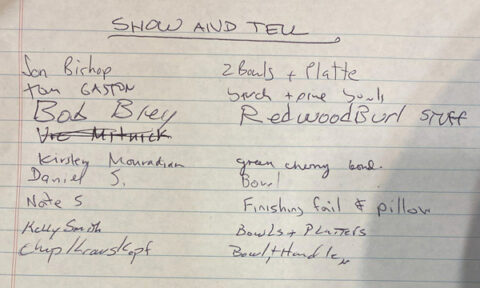 SHOW AND TELL
Jon Bishop 2 Bowls + Platte
Tom GASTON birch + pine bowls
Bob Brey Redwood Burl STUFF
Vic Mitnick
Kirsley Mouradian green cherry bowl.
Daniel S. Bowl
Nate S Finishing fail & pillow
Kelly Smith Bowls + Platters
Chip Krauskopf Bowl,